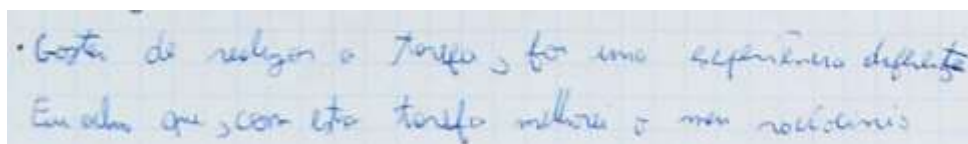 • Gostei de realizar a tarefa, foi uma experiência diferente
Eu acho que, com esta tarefa melhorei o meu raciocínio